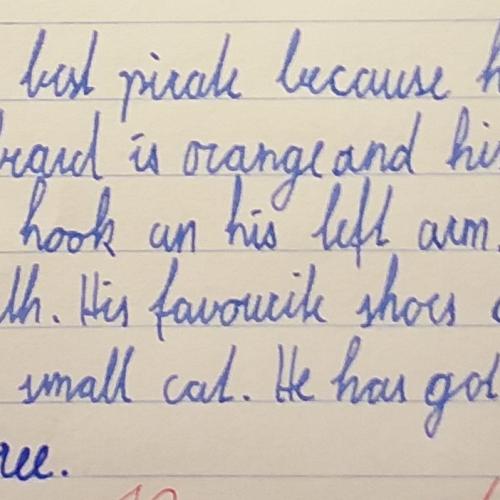 best pirate because h
beard is orange and hi
hook an his left arm.
th. His favourite shoes
small cat. He has got
ree.